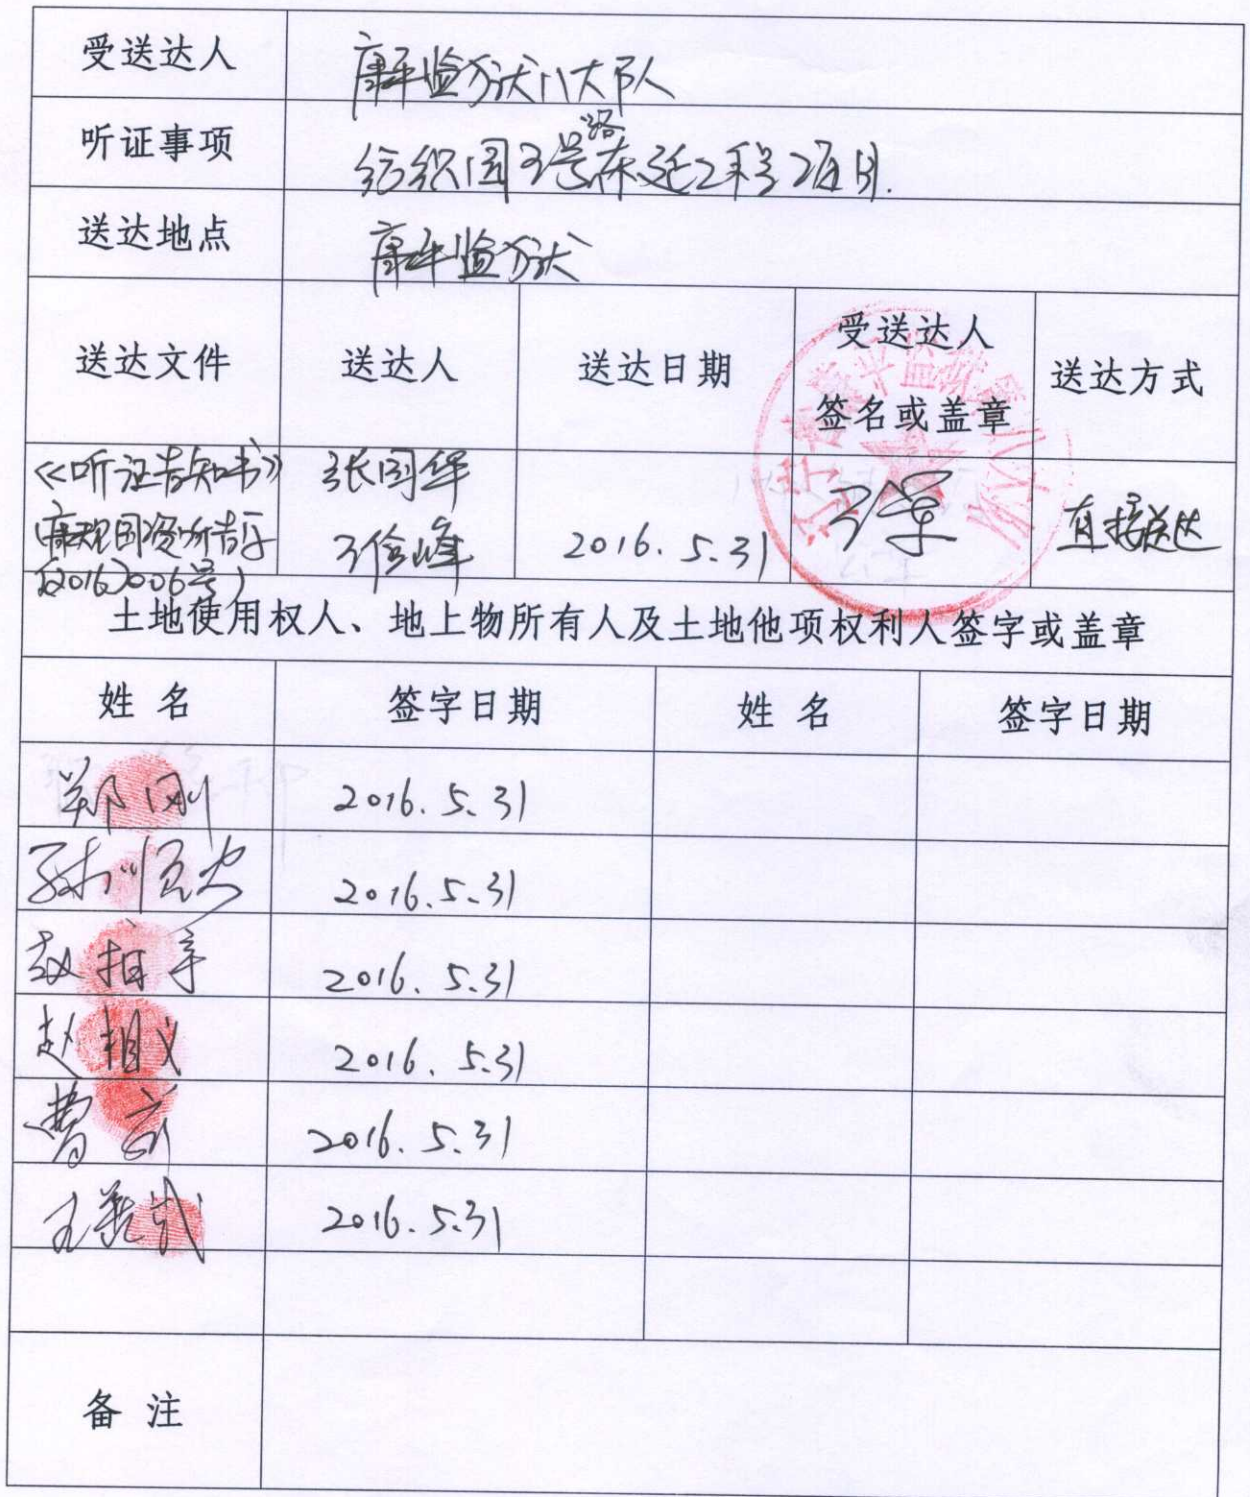 受送达人 康平监狱八大队
听证事项 纺织园3号路东延工程项目.
送达地点 康平监狱
送达文件 送达人 送达日期 受送达人 签名或盖章 送达方式
《听证告知书》 张国华
2016.5.31 直接送达
(2016)006号)
土地使用权人、地上物所有人及土地他项权利人签字或盖章
姓名 签字日期 姓名 签字日期
郑刚 2016.5.31
2016.5.31
赵相 2016.5.31
赵相义 2016.5.31
曹 2016.5.31
王 2016.5.31
备注